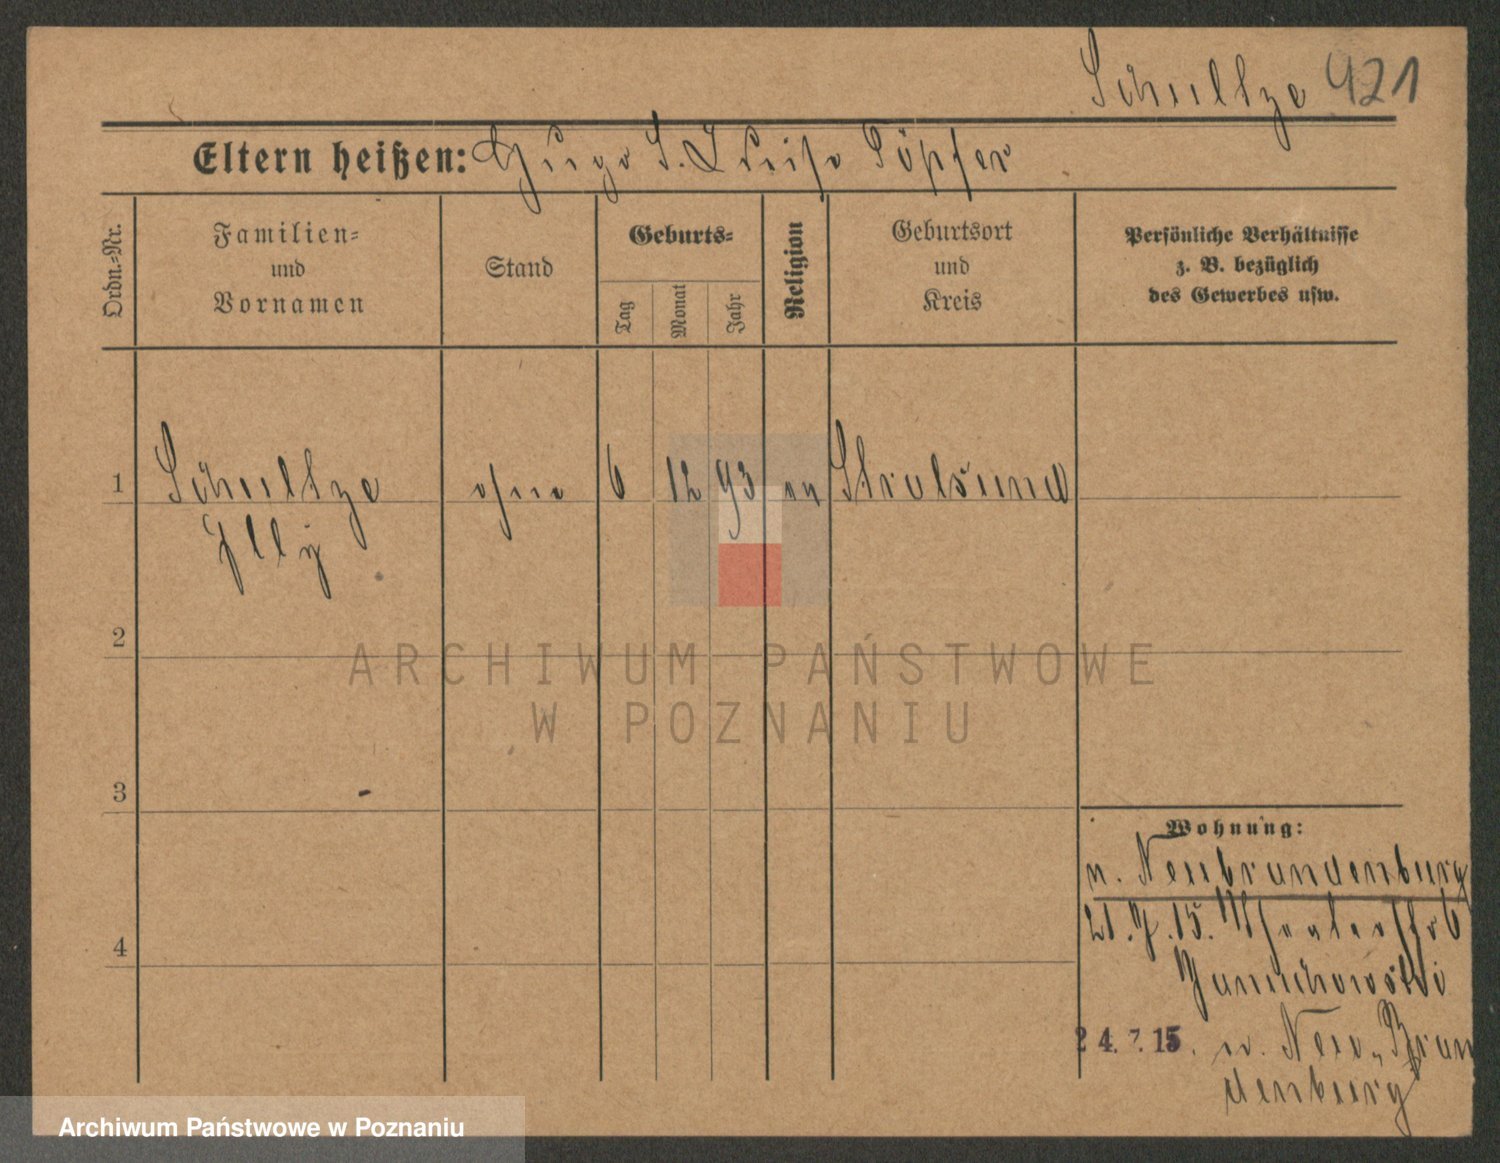 Schultze 421
Eltern heißen: Hugo S. Luise Töpfer
Ordn.-Nr.
Familien-
und
Vornamen
Stand
Geburts-
Tag
Monat
Jahr
Religion
Geburtsort
und
Kreis
Persönliche Verhältnisse
z. B. bezüglich
des Gewerbes usw.
1 Schultze ohne 6 12 93 ev Stralsund
Illy
2
ARCHIWUM PAŃSTWOWE
W POZNANIU
3
Wohnung:
n. Neubrandenburg
4
21.7.15. Theaterstr 6
Januchowski
24.7.15. n. Neu-Bran
denburg
Archiwum Państwowe w Poznaniu